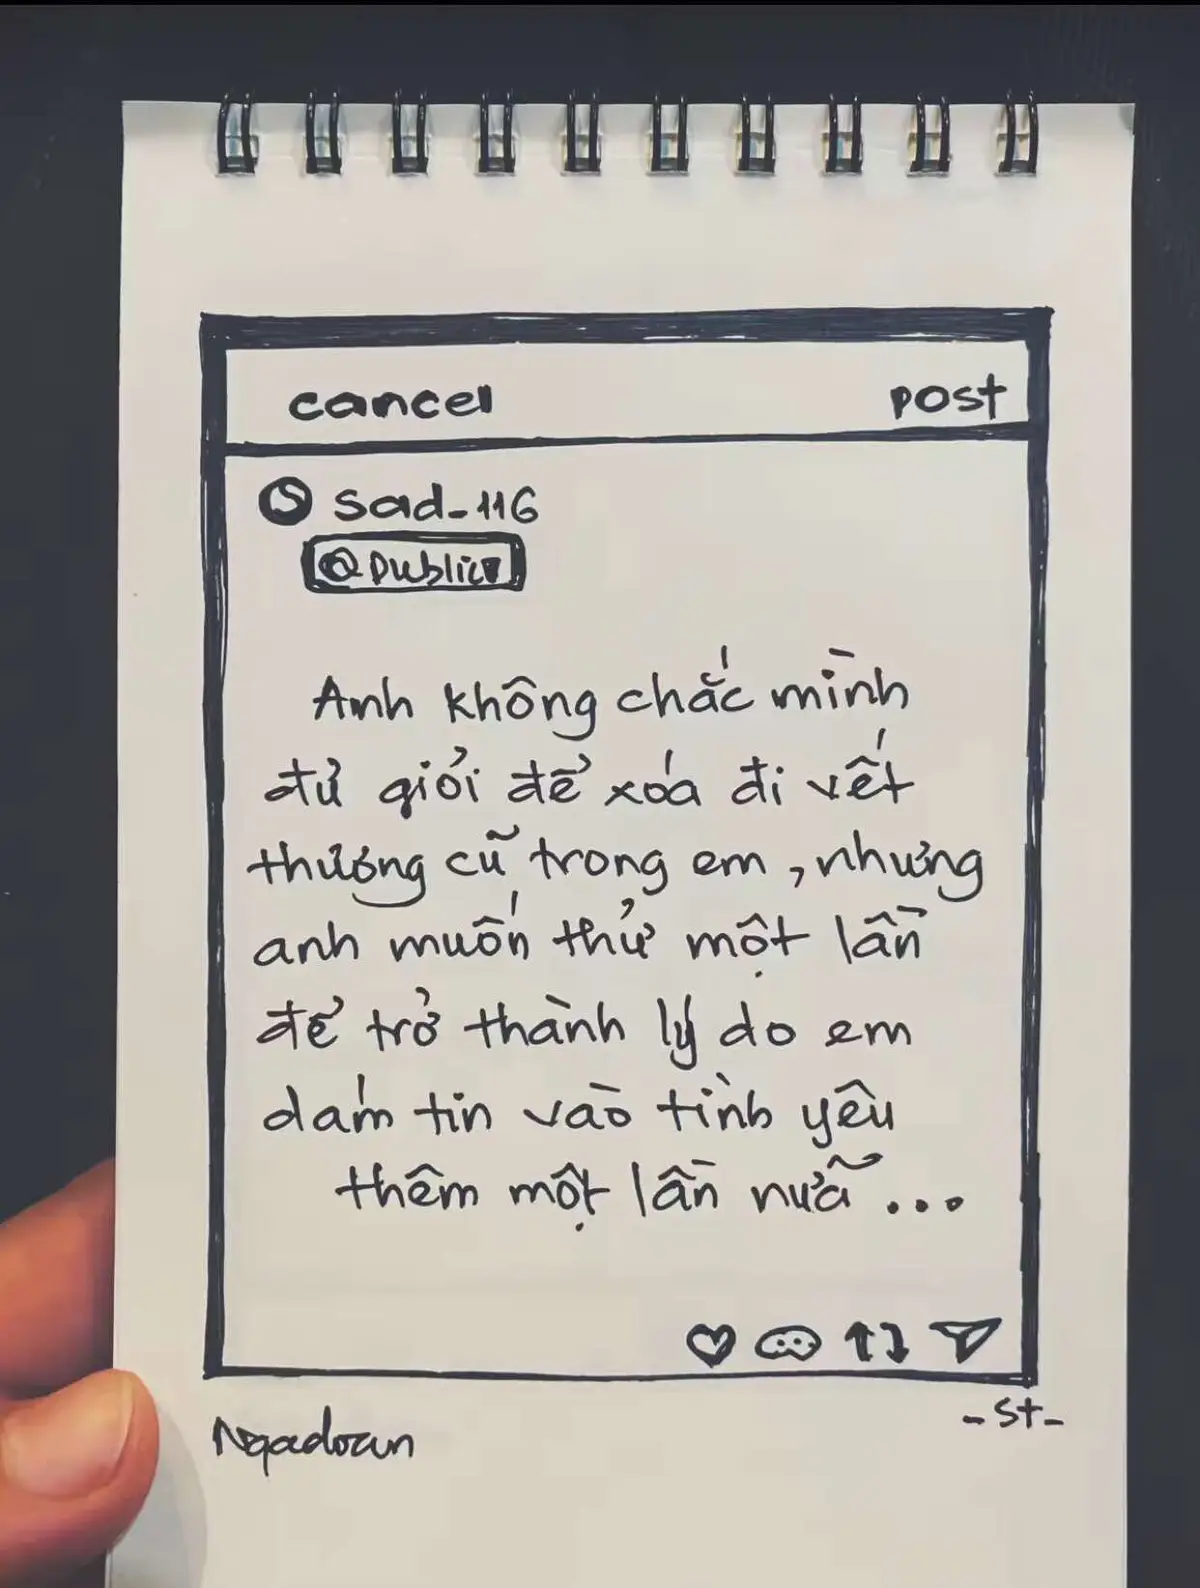 cancel post
S sad_116
@ public
Anh không chắc mình
đủ giỏi để xóa đi vết
thương cũ trong em, nhưng
anh muốn thử một lần
để trở thành lý do em
dám tin vào tình yêu
thêm một lần nữa ...
-st-
Ngadoan